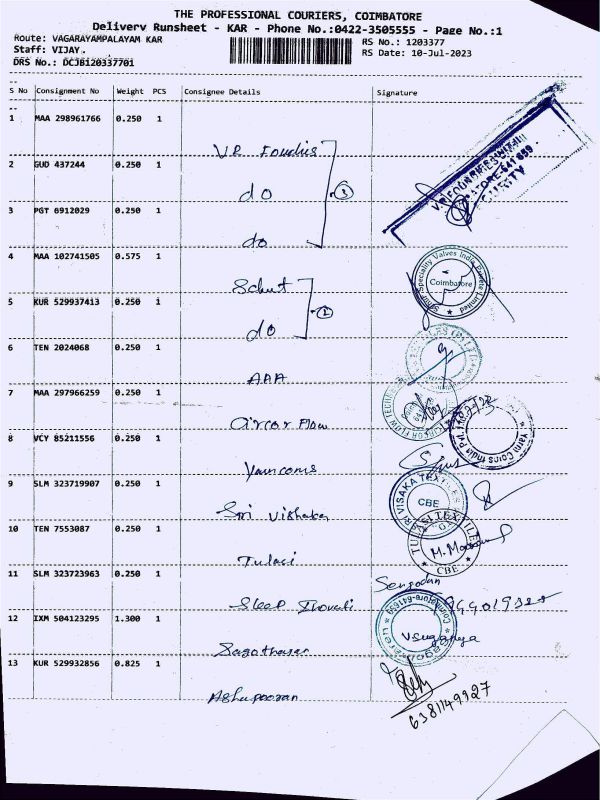 THE PROFESSIONAL COURIERS, COIMBATORE
Delivery Runsheet - KAR - Phone No.:0422-3505555 - Page No.:1
Route: VAGARAYAMPALAYAM KAR
RS No.: 1203377
Staff: VIJAY.
RS Date: 10-Jul-2023
DRS No.: DCJB120337701
S No Consignment No Weight PCS Consignee Details Signature
1 MAA 298961766 0.250 1
VP Foundies
2 GUD 437244 0.250 1
do
3
3 PGT 6912029 0.250 1
do
4 MAA 102741505 0.575 1
Schut
Speciality Valves India Private Limited
Coimbatore
5 KUR 529937413 0.250 1
do
2
6 TEN 2024068 0.250 1
AAA
7 MAA 297966259 0.250 1
Circor Flow
8 VCY 85211556 0.250 1
Yarncoms
Yarn Coms India Pvt. Ltd
9 SLM 323719907 0.250 1
Sri Vishaka
SRI VISAKA TEXTILES
CBE
10 TEN 7553087 0.250 1
Tulasi
TULASI TEXTILE
CBE
11 SLM 323723963 0.250 1
Sleep
Sengodan
12 IXM 504123295 1.300 1
Sagotharan
Coimbatore-641659
V Suganya
13 KUR 529932856 0.825 1
Ashapooran
6381149927